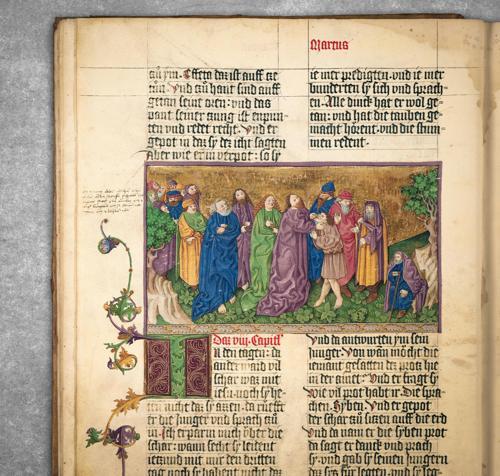 Marcus
zů ym. Effeta daz ist auff tue
tun. Vnd zů hant sind auff
getan seine oren: vnd das
pant seiner zung ist enpun-
ten vnd redet recht. Vnd er
gepot in daz sy dez icht sagten
Aber wie er in verpot: so sy
ie mer predigten. vnd ie mer
bunderten sy sich vnd sprach-
en. Alle dinck hat er wol ge-
tan: vnd hat die tauben ge-
macht hörent. vnd die stum-
men redent.
Daz viij. Capitl
IN den tagen: da
ander waid vil
schar waz mit
iesu. noch sy he-
ten nicht da sy azen: da rüefft
er die iunger vnd sprach zů
in. Ich erparm mich vber die
schar: wann secht sy leident
ieczund mit mir den dritten
tag noch sy habent nicht da
Vnd da antwurten ym sein
iunger. Von wan möcht die
iemant gesatten der prot hie
in der ainet: Vnd er fragt sy
wie vil prot habt ir. Die spra-
chen. Syben. Vnd er gepot
der schar zů siczen auff die erd
Vnd da nam er die syben prot
da sagt er danck vnd prach
sy. vnd gab sy seinen iungern
daz sy für legten. vnd sy leg-